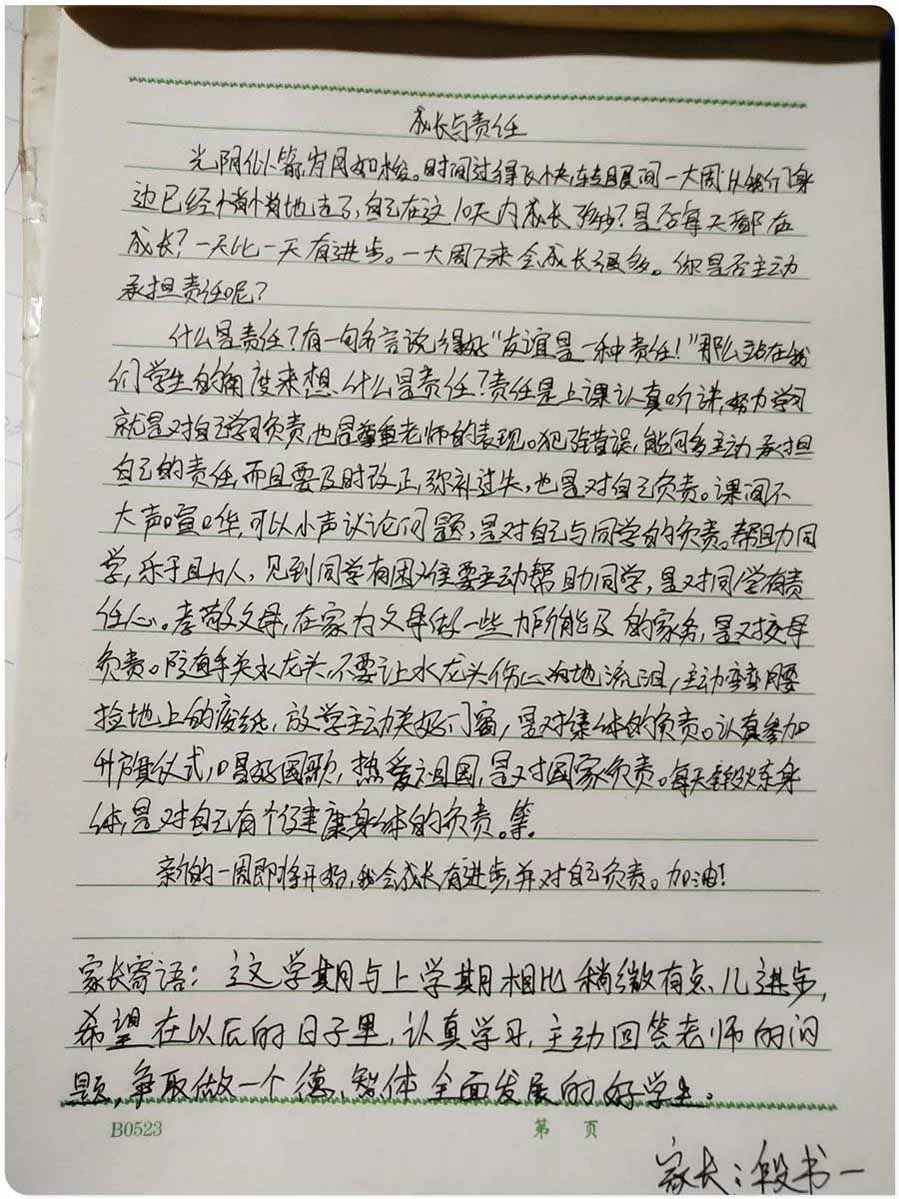 成长与责任
光阴似箭,岁月如梭。时间过得飞快,转眼间一大周从我们身
边已经悄悄地走了,自己在这10天内成长了吗?是否每天都在
成长?一天比一天有进步。一大周下来会成长很多。你是否主动
承担责任呢?
什么是责任?有一句名言说得好“友谊是一种责任!”那么站在我
们学生的角度来想,什么是责任?责任是上课认真听讲,努力学习
就是对自己学习负责,也是尊重老师的表现。犯了错误,能够主动承担
自己的责任,而且要及时改正,弥补过失,也是对自己负责。课间不
大声喧哗,可以小声议论问题,是对自己与同学的负责。帮助同
学,乐于助人,见到同学有困难要主动帮助同学,是对同学有责
任心。孝敬父母,在家为父母做一些力所能及的家务,是对父母
负责。随手关水龙头,不要让水龙头伤心的地流泪,主动弯弯腰
捡地上的废纸,放学主动关好门窗,是对集体的负责。认真参加
升旗仪式,唱好国歌,热爱祖国,是对国家负责。每天锻炼身
体,是对自己有个健康身体的负责。等。
新的一周即将开始,我会成长有进步,并对自己负责。加油!
家长寄语:这学期与上学期相比稍微有点儿进步,
希望在以后的日子里,认真学习,主动回答老师的问
题,争取做一个德、智体全面发展的好学生。
B0523 第 页
家长:段书一